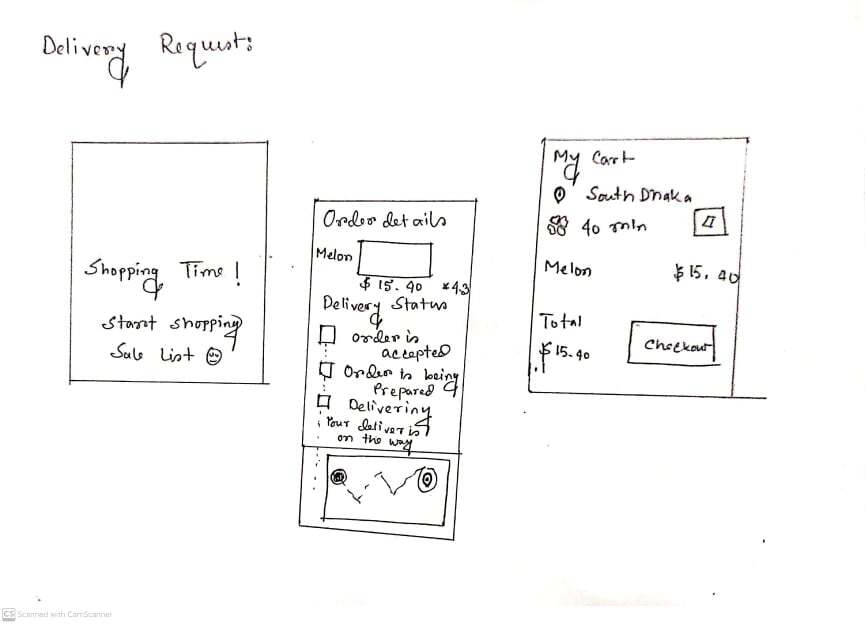 Delivery Request:
Shopping Time!
Start shopping
Sale List
Order details
Melon
$ 15.40 *4.3
Delivery Status
order is
accepted
Order is being
Prepared
Delivering
Your deliver is
on the way
My Cart
South Dhaka
40 min
Melon $15.40
Total
$15.40
Checkout
CS Scanned with CamScanner